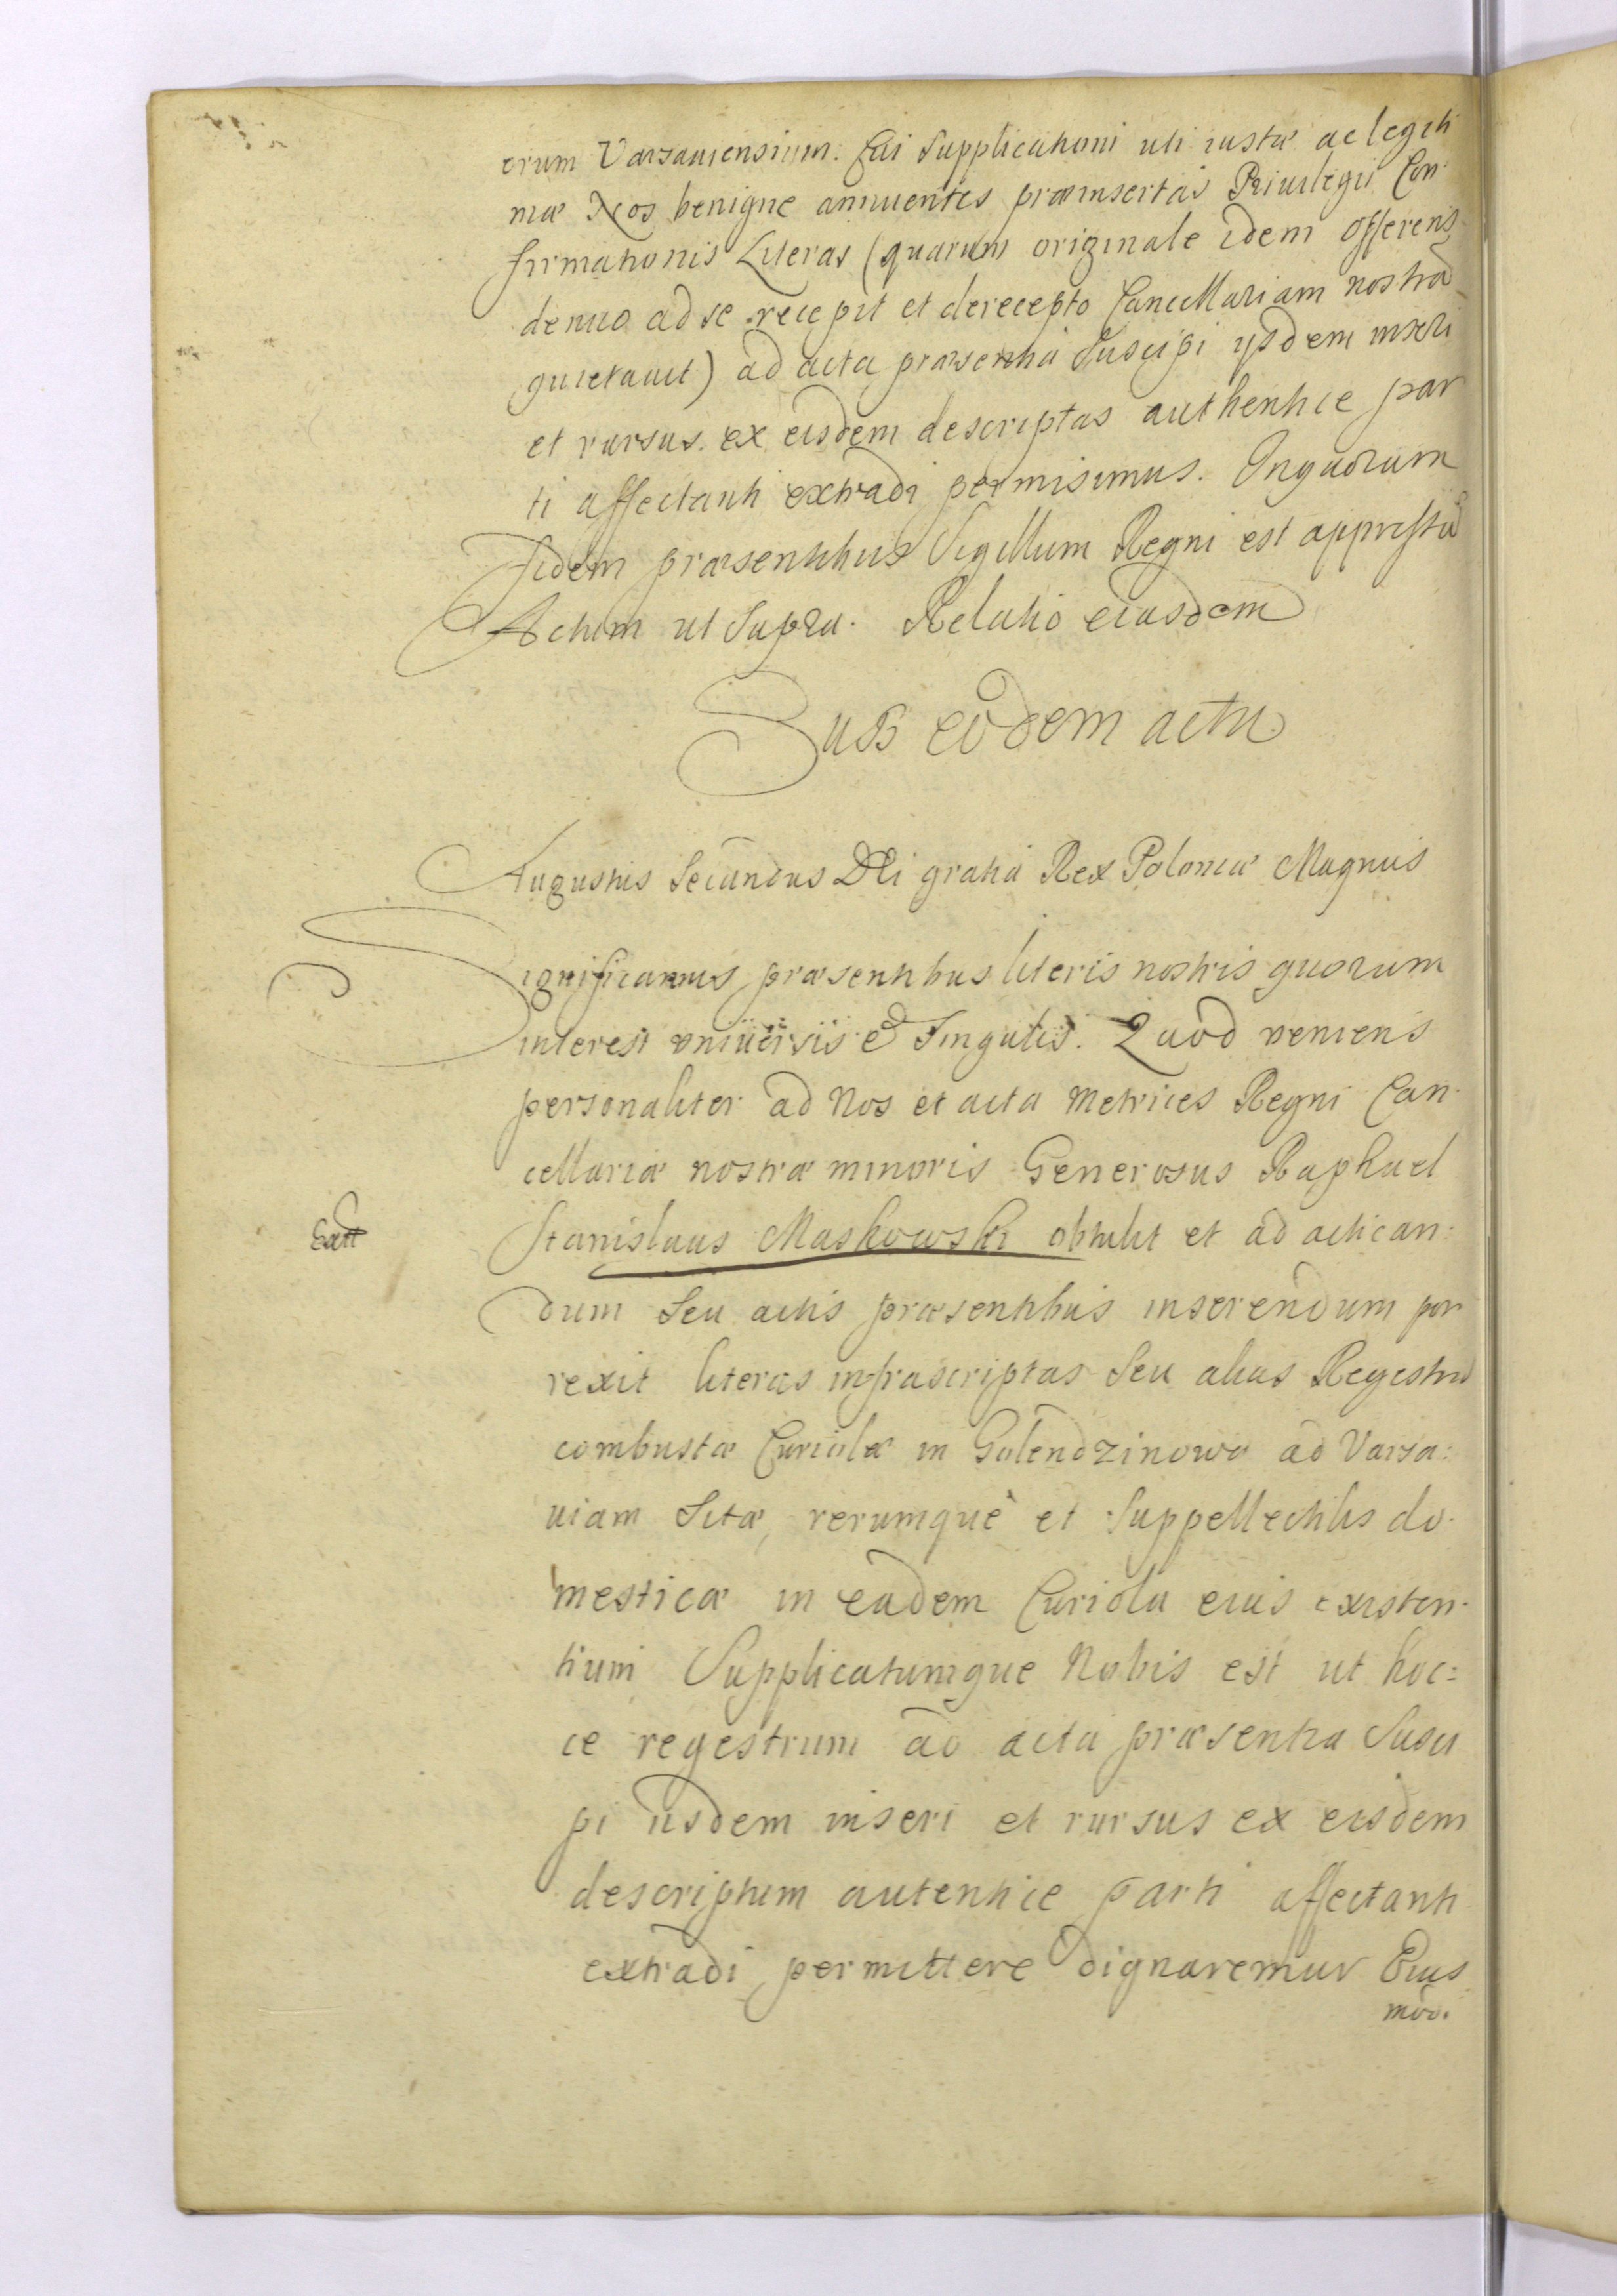 orum Varsauiensium. Cui Supplicationi uti iustæ ac legiti
mæ Nos benigne annuentes præinsertas Priuilegii Con-
firmationis Literas (quarum originale idem offerens
denuo ad se recepit et de recepto Cancellariam nostrã
quietauit) ad acta præsentia Suscipi ysdem inseri
et rursus ex eisdem descriptas authentice par
ti affectanti extradi permisimus. In quorum
fidem præsentibus Sigillum Regni est appressũ
Actum ut Supra. Relatio eiusdem
Sub eodem actu
Augustus Secundus Dei gratia Rex Poloniæ Magnus
Significamus præsentibus literis nostris quorum
interest vniuersis & Singulis. Quod veniens
personaliter ad Nos et acta Metrices Regni Can-
cellariæ nostræ minoris Generosus Raphael
Stanislaus Maskowski obtulit et ad actican:
dum Seu actis præsentibus inserendum por
rexit literas infrascriptas Seu alias Regestrũ
combustæ Curiolæ in Golendzinowo ad Varsa:
uiam Sitæ, rerumque et Suppellectilis do-
mesticæ in eadem Curiola eius existen-
tium Supplicatumque Nobis est ut hoc=
ce regestrum ad acta præsentia Susci
pi iisdem inseri et rursus ex eisdem
descriptum autentice parti affectanti
extradi permittere dignaremur Eius
mod.